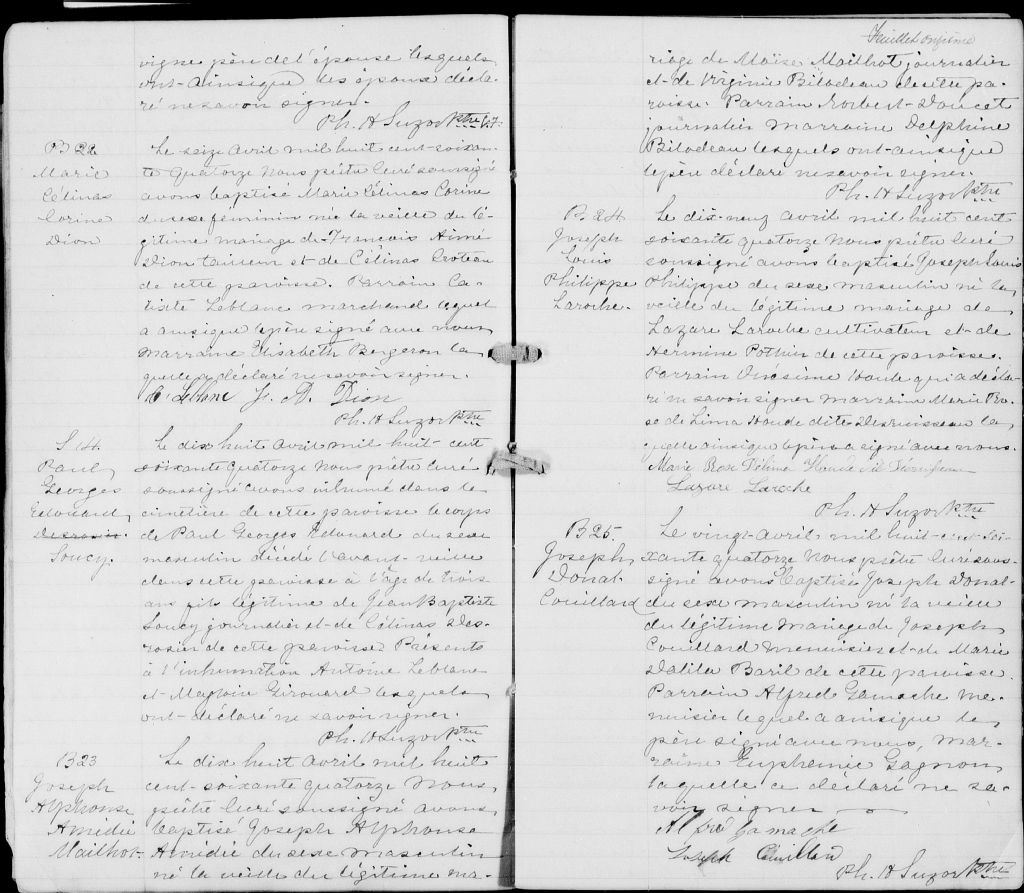 vigne père de l'épouse lesquels
ont ainsique les époux décla-
ré ne savoir signer.
Ph. H Suzor Ptre
B 22
Marie
Célinas
Corine
Dion
Le seize avril mil huit cent soixan-
te quatorze nous prêtre curé soussigné
avons baptisé Marie Célinas Corine
du sexe féminin née la veille du lé-
gitime mariage de François Aimé
Dion tailleur et de Célinas Croteau
de cette paroisse. Parrain Ca-
lixte Leblanc marchand lequel
a ainsique le père signé avec nous,
Marraine Elisabeth Bergeron la
quelle a déclaré ne savoir signer.
C. Leblanc F. A. Dion
Ph. H Suzor Ptre
S 14
Paul
Georges
Edouard
Desrosier
Soucy.
Le dix huit avril mil huit cent
soixante quatorze nous prêtre curé
soussigné avons inhumé dans le
cimetière de cette paroisse le corps
de Paul Georges Edouard du sexe
masculin décédé l'avant-veille
dans cette paroisse à l'âge de trois
ans fils légitime de Jean Baptiste
Soucy journalier et de Célinas Des-
rosier de cette paroisse Présents
à l'inhumation Antoine Leblanc
et Majoire Girouard lesquels
ont déclaré ne savoir signer.
Ph. H Suzor Ptre
B 23
Joseph
Alphonse
Amédée
Mailhot
Le dix huit avril mil huit
cent soixante quatorze nous
prêtre curé soussigné avons
baptisé Joseph Alphonse
Amédée du sexe masculin
né la veille du légitime ma-
Feuillet onzième
riage de Moïse Mailhot journalier
et de Virginie Bilodeau de cette pa-
roisse. Parrain Norbert Doucet
journalier marraine Delphine
Bilodeau lesquels ont ainsique
le père déclaré ne savoir signer.
Ph. H Suzor Ptre
B 24
Joseph
Louis
Philippe
Laroche.
Le dix-neuf avril mil huit cent
soixante quatorze nous prêtre curé
soussigné avons baptisé Joseph Louis
Philippe du sexe masculin né la
veille du légitime mariage de
Lazare Laroche cultivateur et de
Hermine Pothier de cette paroisse.
Parrain Onésime Houle qui a décla-
ré ne savoir signer marraine Marie Ro-
se de Lima Houde dite Desruisseau la
quelle ainsique le père a signé avec nous.
Marie Rose Délima Houde dit
Lazare Laroche
Ph. H Suzor Ptre
B 25.
Joseph
Donat
Couillard
Le vingt avril mil huit cent soi-
xante quatorze nous prêtre curé sous-
signé avons baptisé Joseph Donat
du sexe masculin né la veille
du légitime mariage de Joseph
Couillard menuisier et de Marie
Dalila Baril de cette paroisse.
Parrain Alfred Gamache me-
nuisier lequel a ainsique le
père signé avec nous, mar-
raine Euphémie Gagnon
laquelle a déclaré ne sa-
voir signer
Alfré Gamache
Joseph Couillard
Ph. H Suzor Ptre